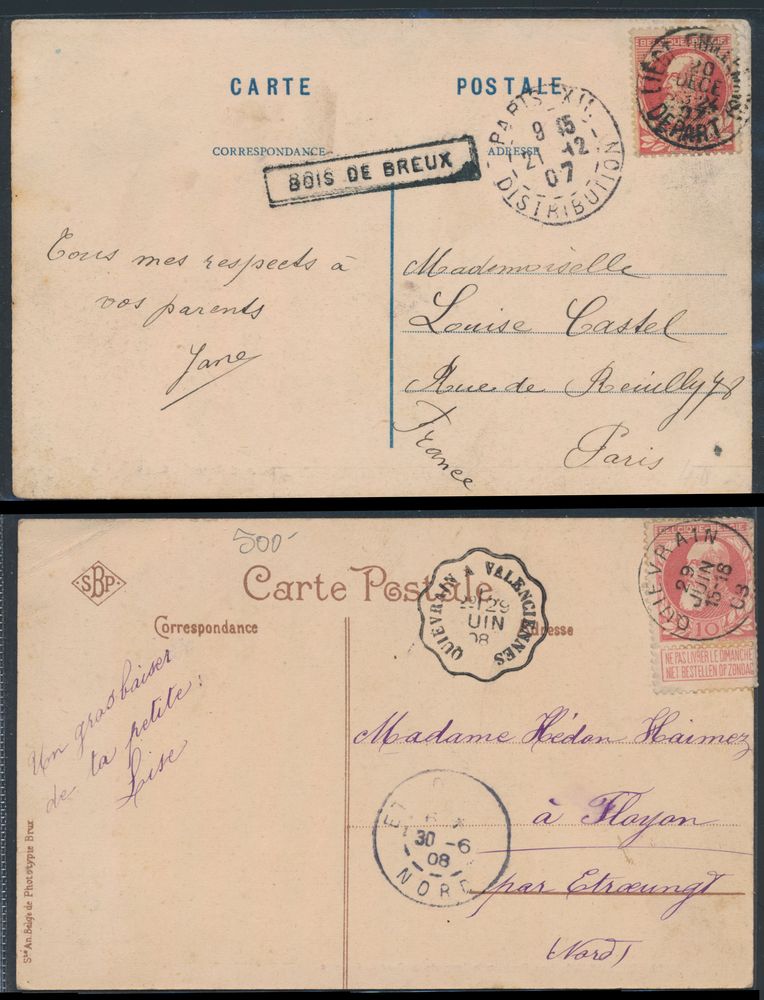 CARTE POSTALE
CORRESPONDANCE ADRESSE
BOIS DE BREUX
PARIS XII
9 15
21 -12
07
DISTRIBUTION
BELGIQUE BELGIE
LIEGE
20
DECE
07
DEPART
Tous mes respects à
vos parents
Jane
Mademoiselle
Louise Castel
Rue de Reuilly 78
Paris
France
500-
SBP
Carte Postale
Correspondance
Adresse
QUIÉVRAIN A VALENCIENNES
29
JUIN
08
BELGIQUE BELGIË
QUIEVRAIN
29
JUIN
15-18
10
NE PAS LIVRER LE DIMANCHE
NIET BESTELLEN OP ZONDAG
Un gros baiser
de ta petite
Lise
Madame Hédon Haimez
à Floyon
par Etrœungt
(Nord)
30 -6
08
NORD
Sté An. Belge de Phototypie Brux